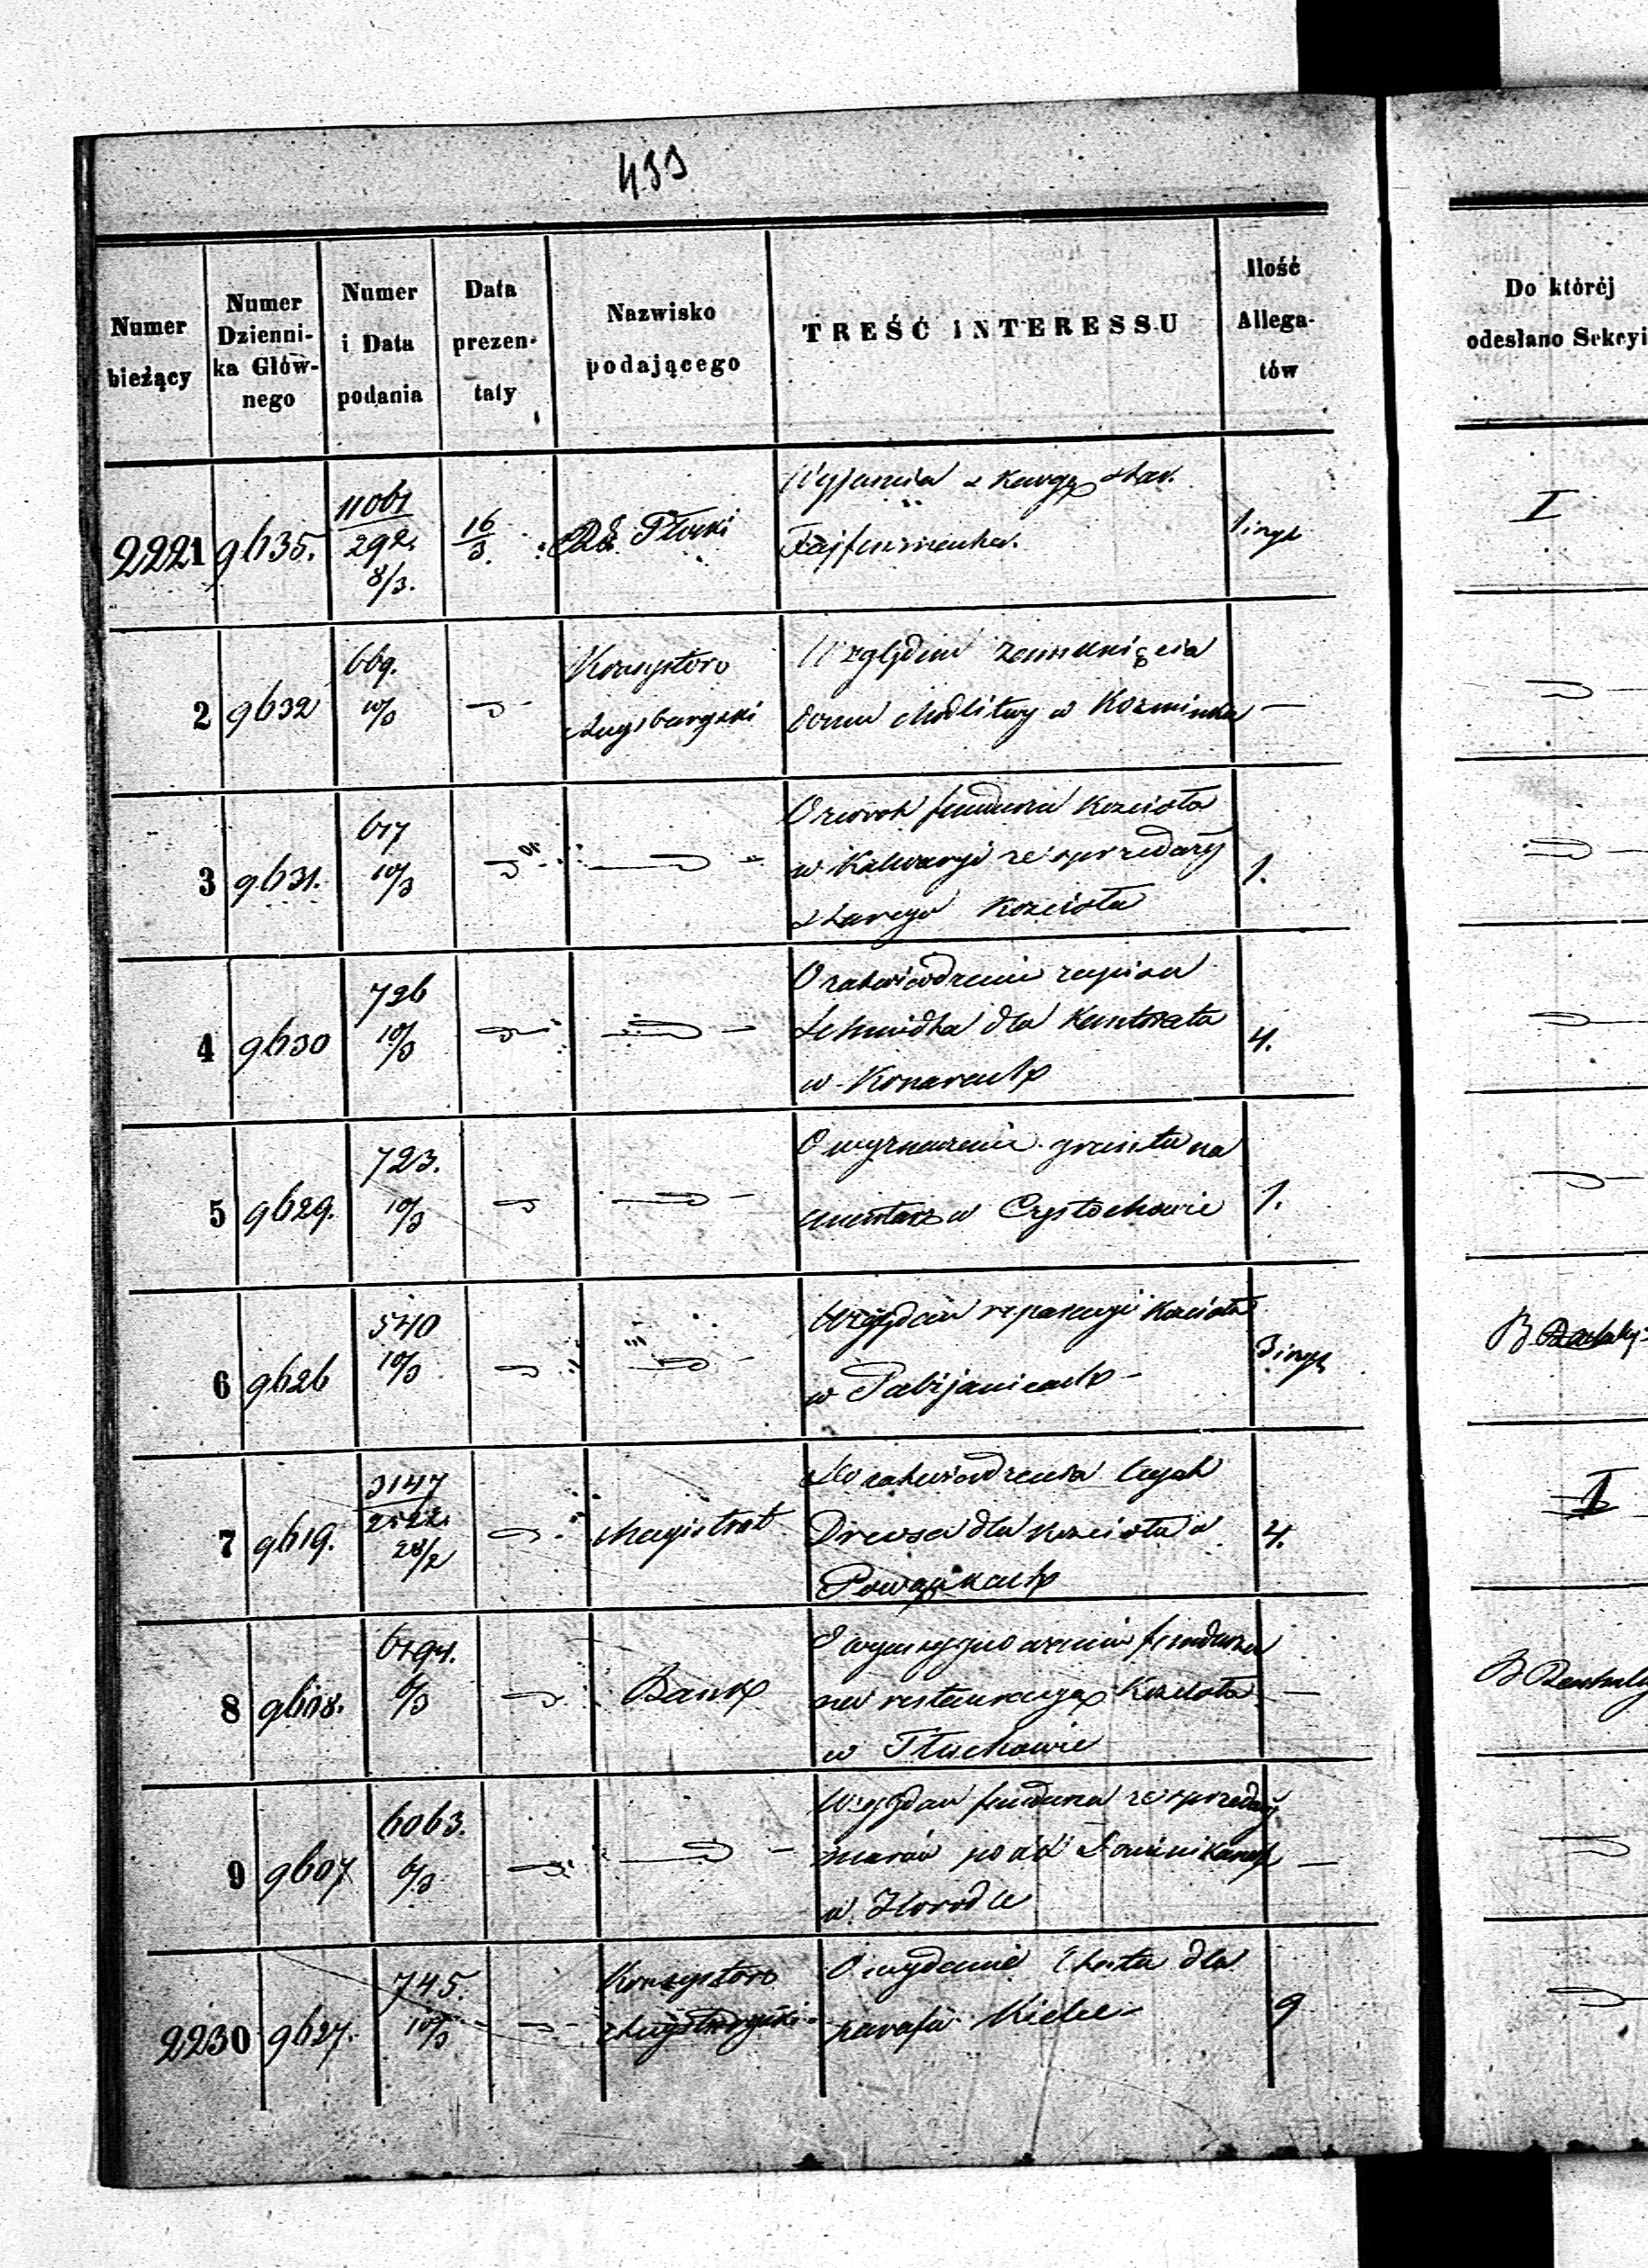 433
Numer bieżący
Numer Dzienni-ka Głów-nego
Numer i Data podania
Data prezen-taty
Nazwisko podającego
TREŚĆ INTERESSU
Ilość Allega-tów
Do któréj odesłano Sekcyi
2221 9635. 11061 292. 8/3. 16/3. Płocki
1 I
2 9632 669. 10/3 Konsystorz
Augsburgski
Względem zamknięcia
domu modlitwy w Kozminku —
3 9631. 677 10/3
O zwrot funduszu Kościoła
w Kalwaryi ze sprzedaży
starego Kościoła
1.
4 9630 726 10/3
O zatwierdzenie zapisu
Schmidta dla Kantorata
w
4.
5 9629. 723. 10/3
O wyznaczenie gruntu na
cmentarz w Częstochowie
1.
6 9626 540 10/3
Względem reparacyi Kościoła
w Pabijanicach —
7 9619. 3147 2522. 28/2 Magistrat
Do zatwierdzenia
Drewsa dla Kościoła w
Powązkach
4. I
8 9608. 6794. 6/3 Bank
O wyasygnowanie funduszu
na restauracyę Kościoła
w Tłuchowie
—
9 9607 6063. 6/3
Względem funduszu ze sprzedaży
murów po XX Dominikanach
w Horodle
—
2230 9627. 745. 10/3 Konsystorz
Augsburgski
O wydanie Etatu dla
parafii Kielce
9